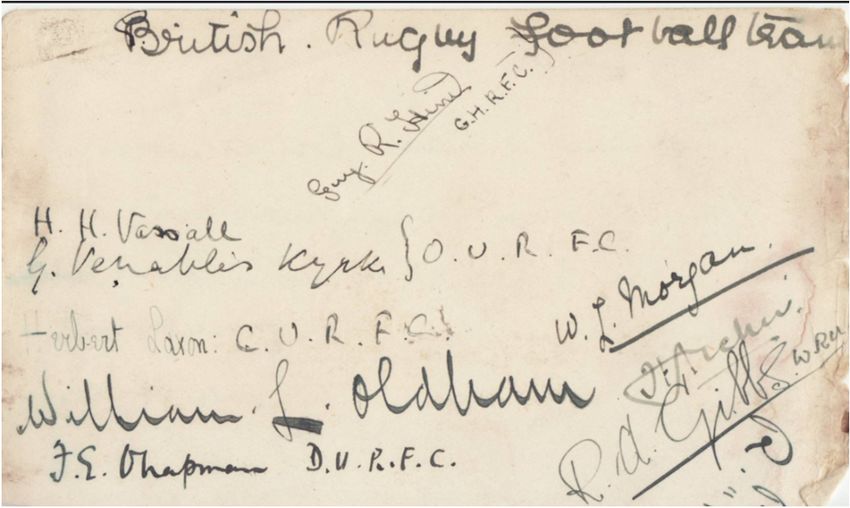 British. Rugby Football team
Guy. R. Hind
G.H.R.F.C.
H. H. Vassall
G. Venables Kyrke } O. U. R. F.C.
Herbert Laxon: C. U. R. F. C.
W. L. Morgan.
R. A. Gibbs. W.R.U
William. L. Oldham
F. E. Chapman D.U.R.F.C.